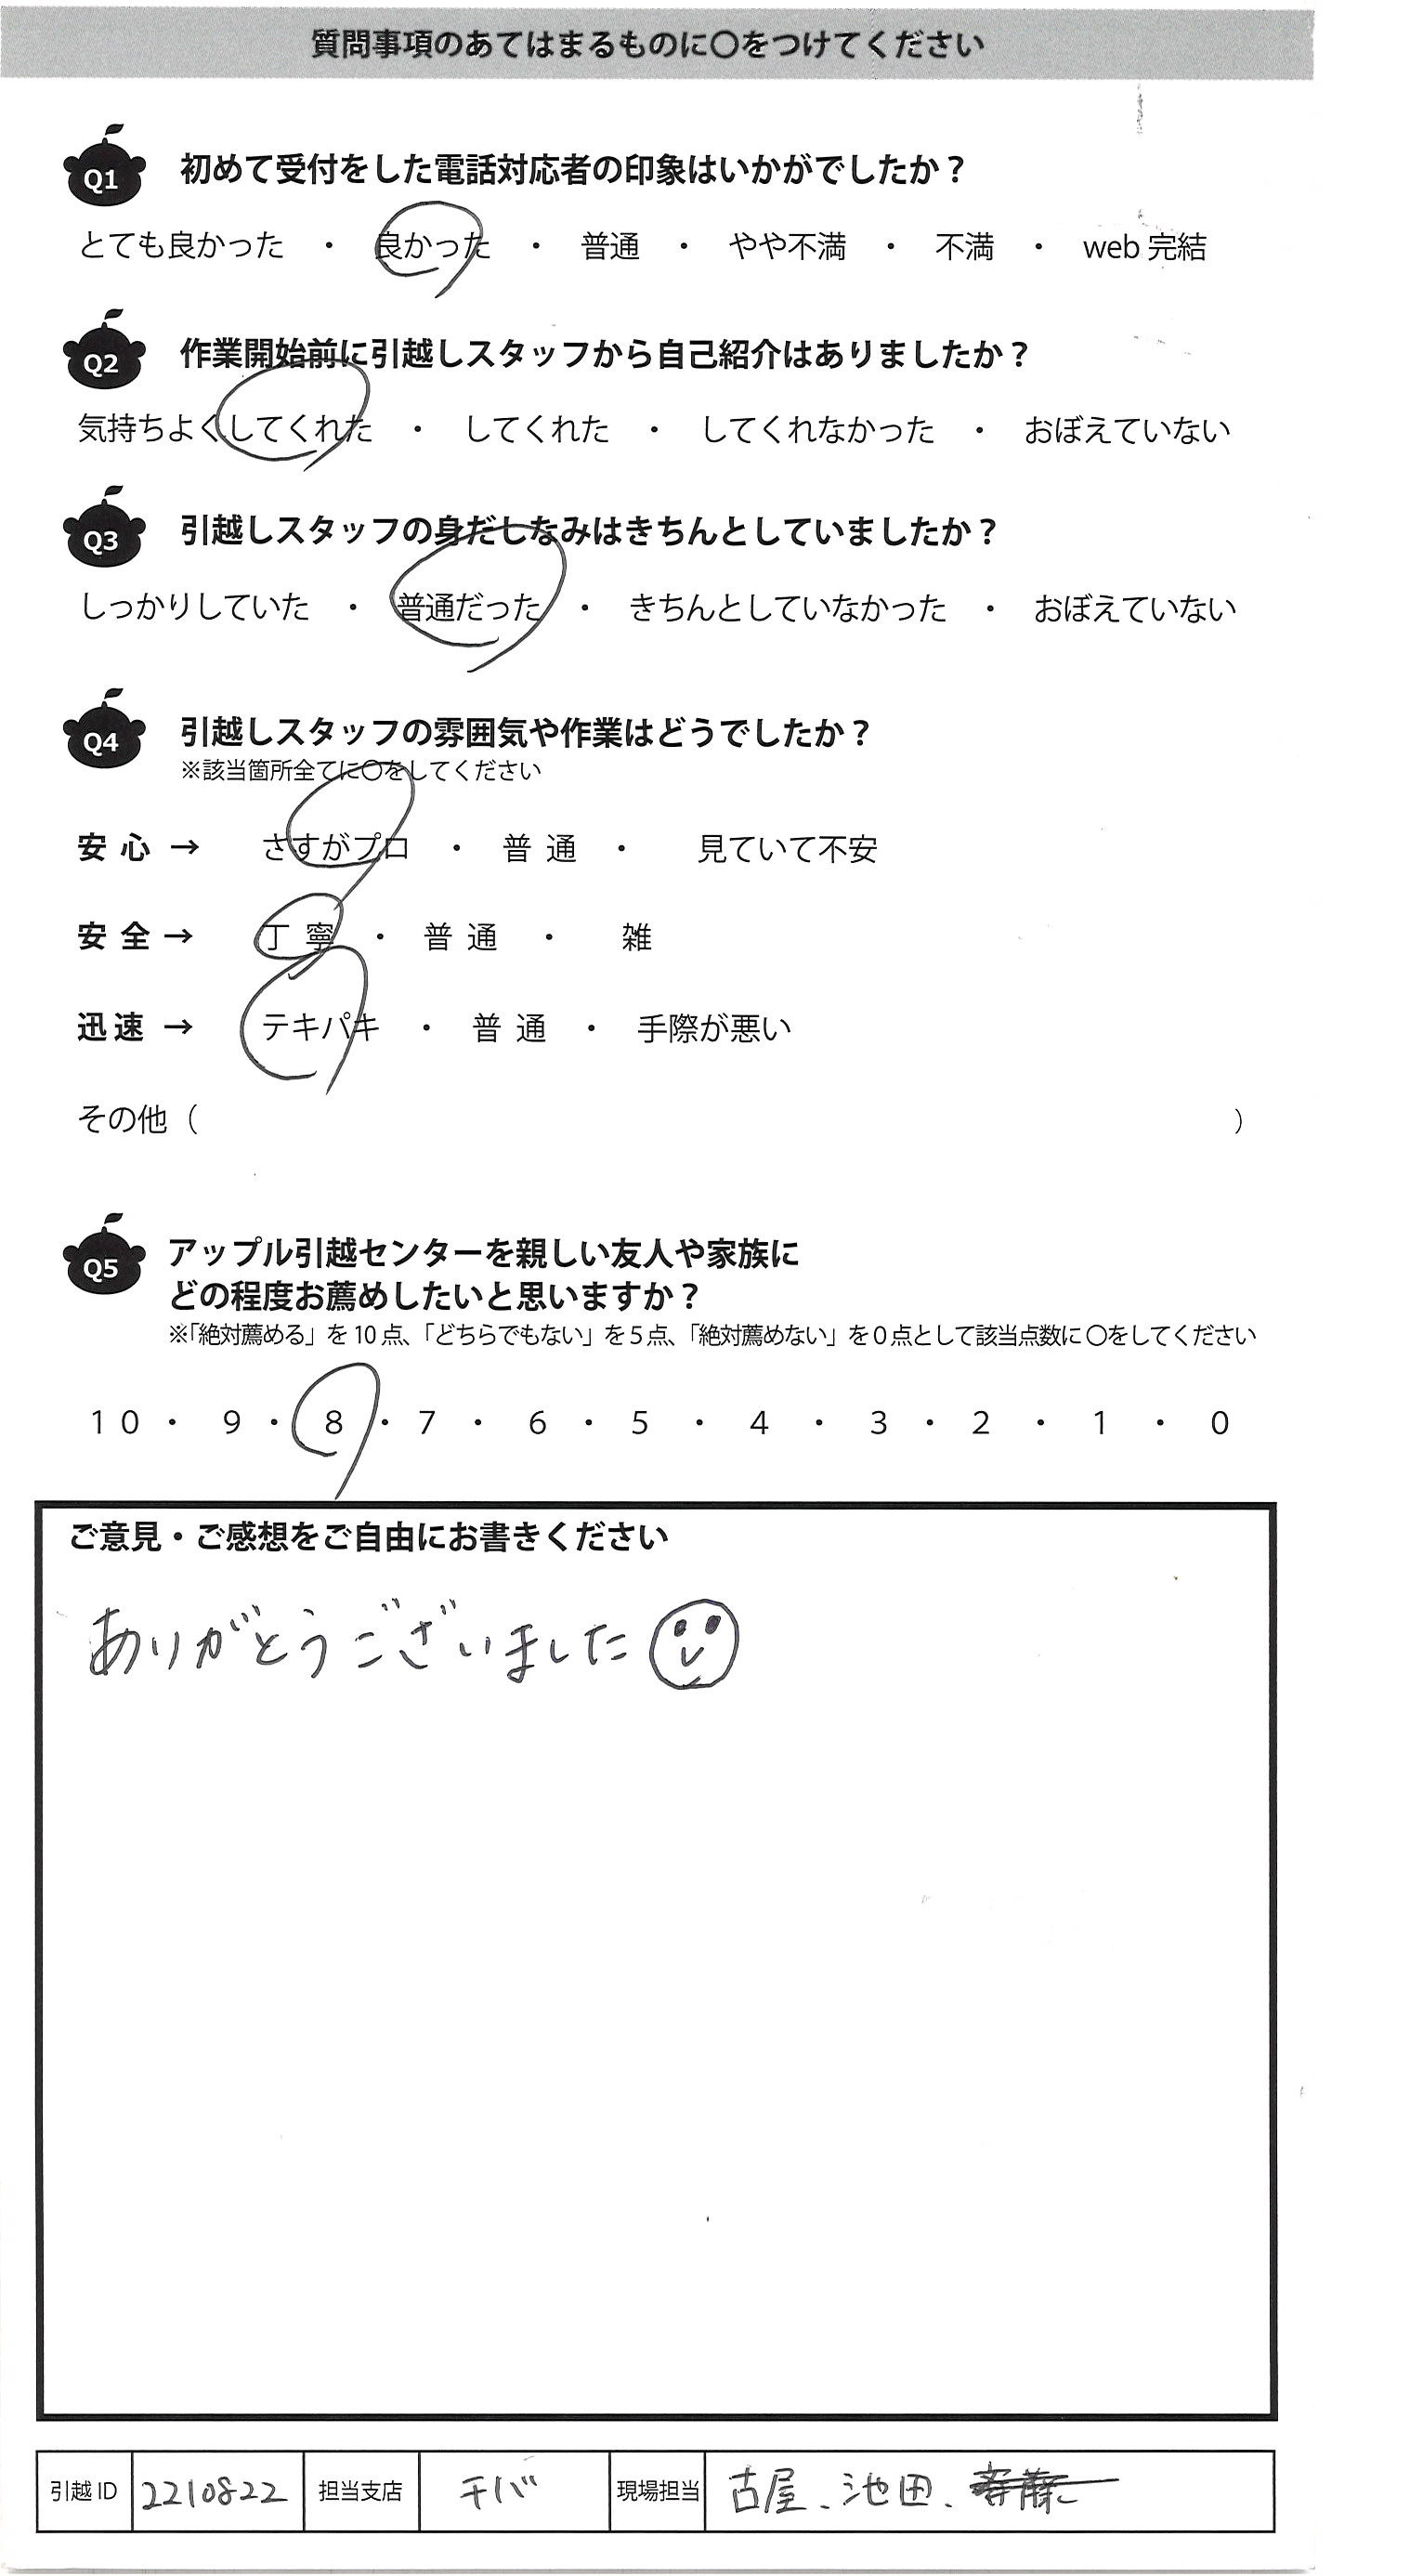 質問事項のあてはまるものに〇をつけてください
Q1 初めて受付をした電話対応者の印象はいかがでしたか？
とても良かった ・ 良かった ・ 普通 ・ やや不満 ・ 不満 ・ web 完結
Q2 作業開始前に引越しスタッフから自己紹介はありましたか？
気持ちよくしてくれた ・ してくれた ・ してくれなかった ・ おぼえていない
Q3 引越しスタッフの身だしなみはきちんとしていましたか？
しっかりしていた ・ 普通だった ・ きちんとしていなかった ・ おぼえていない
Q4 引越しスタッフの雰囲気や作業はどうでしたか？
※該当箇所全てに〇をしてください
安 心 → さすがプロ ・ 普 通 ・ 見ていて不安
安 全 → 丁 寧 ・ 普 通 ・ 雑
迅 速 → テキパキ ・ 普 通 ・ 手際が悪い
その他（ ）
Q5 アップル引越センターを親しい友人や家族に
どの程度お薦めしたいと思いますか？
※「絶対薦める」を 10 点、「どちらでもない」を 5 点、「絶対薦めない」を 0 点として該当点数に 〇をしてください
10 ・ 9 ・ 8 ・ 7 ・ 6 ・ 5 ・ 4 ・ 3 ・ 2 ・ 1 ・ 0
ご意見・ご感想をご自由にお書きください
ありがとうございました
引越 ID 2210822 担当支店 チバ 現場担当 古屋、池田、